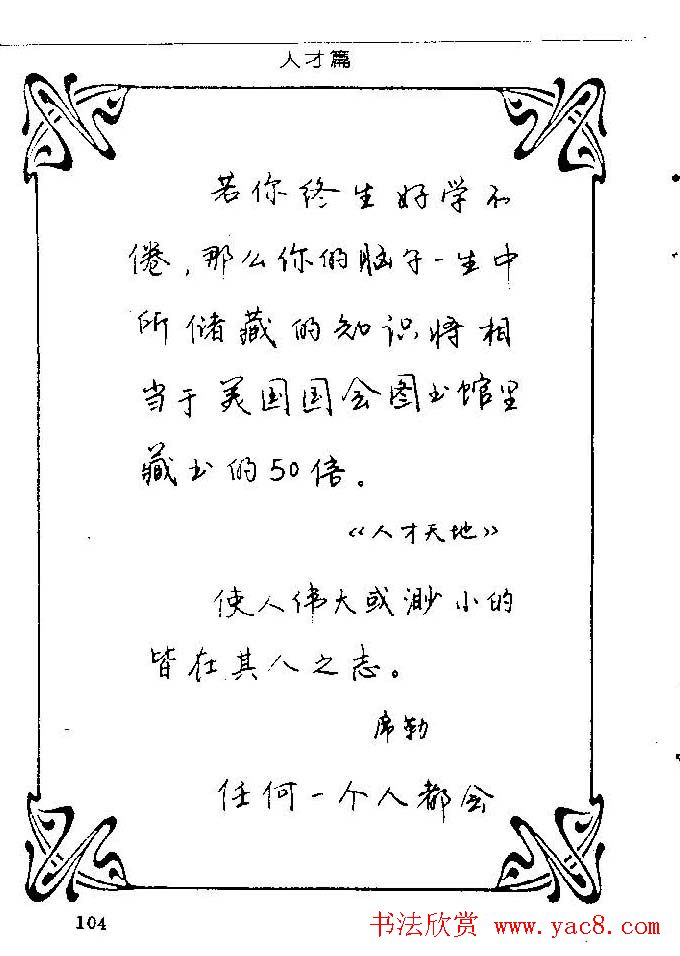 人才篇
若你终生好学不
倦，那么你的脑子一生中
所储藏的知识将相
当于美国国会图书馆里
藏书的50倍。
《人才天地》
使人伟大或渺小的
皆在其人之志。
席勒
任何一个人都会
104
书法欣赏 www.yac8.com